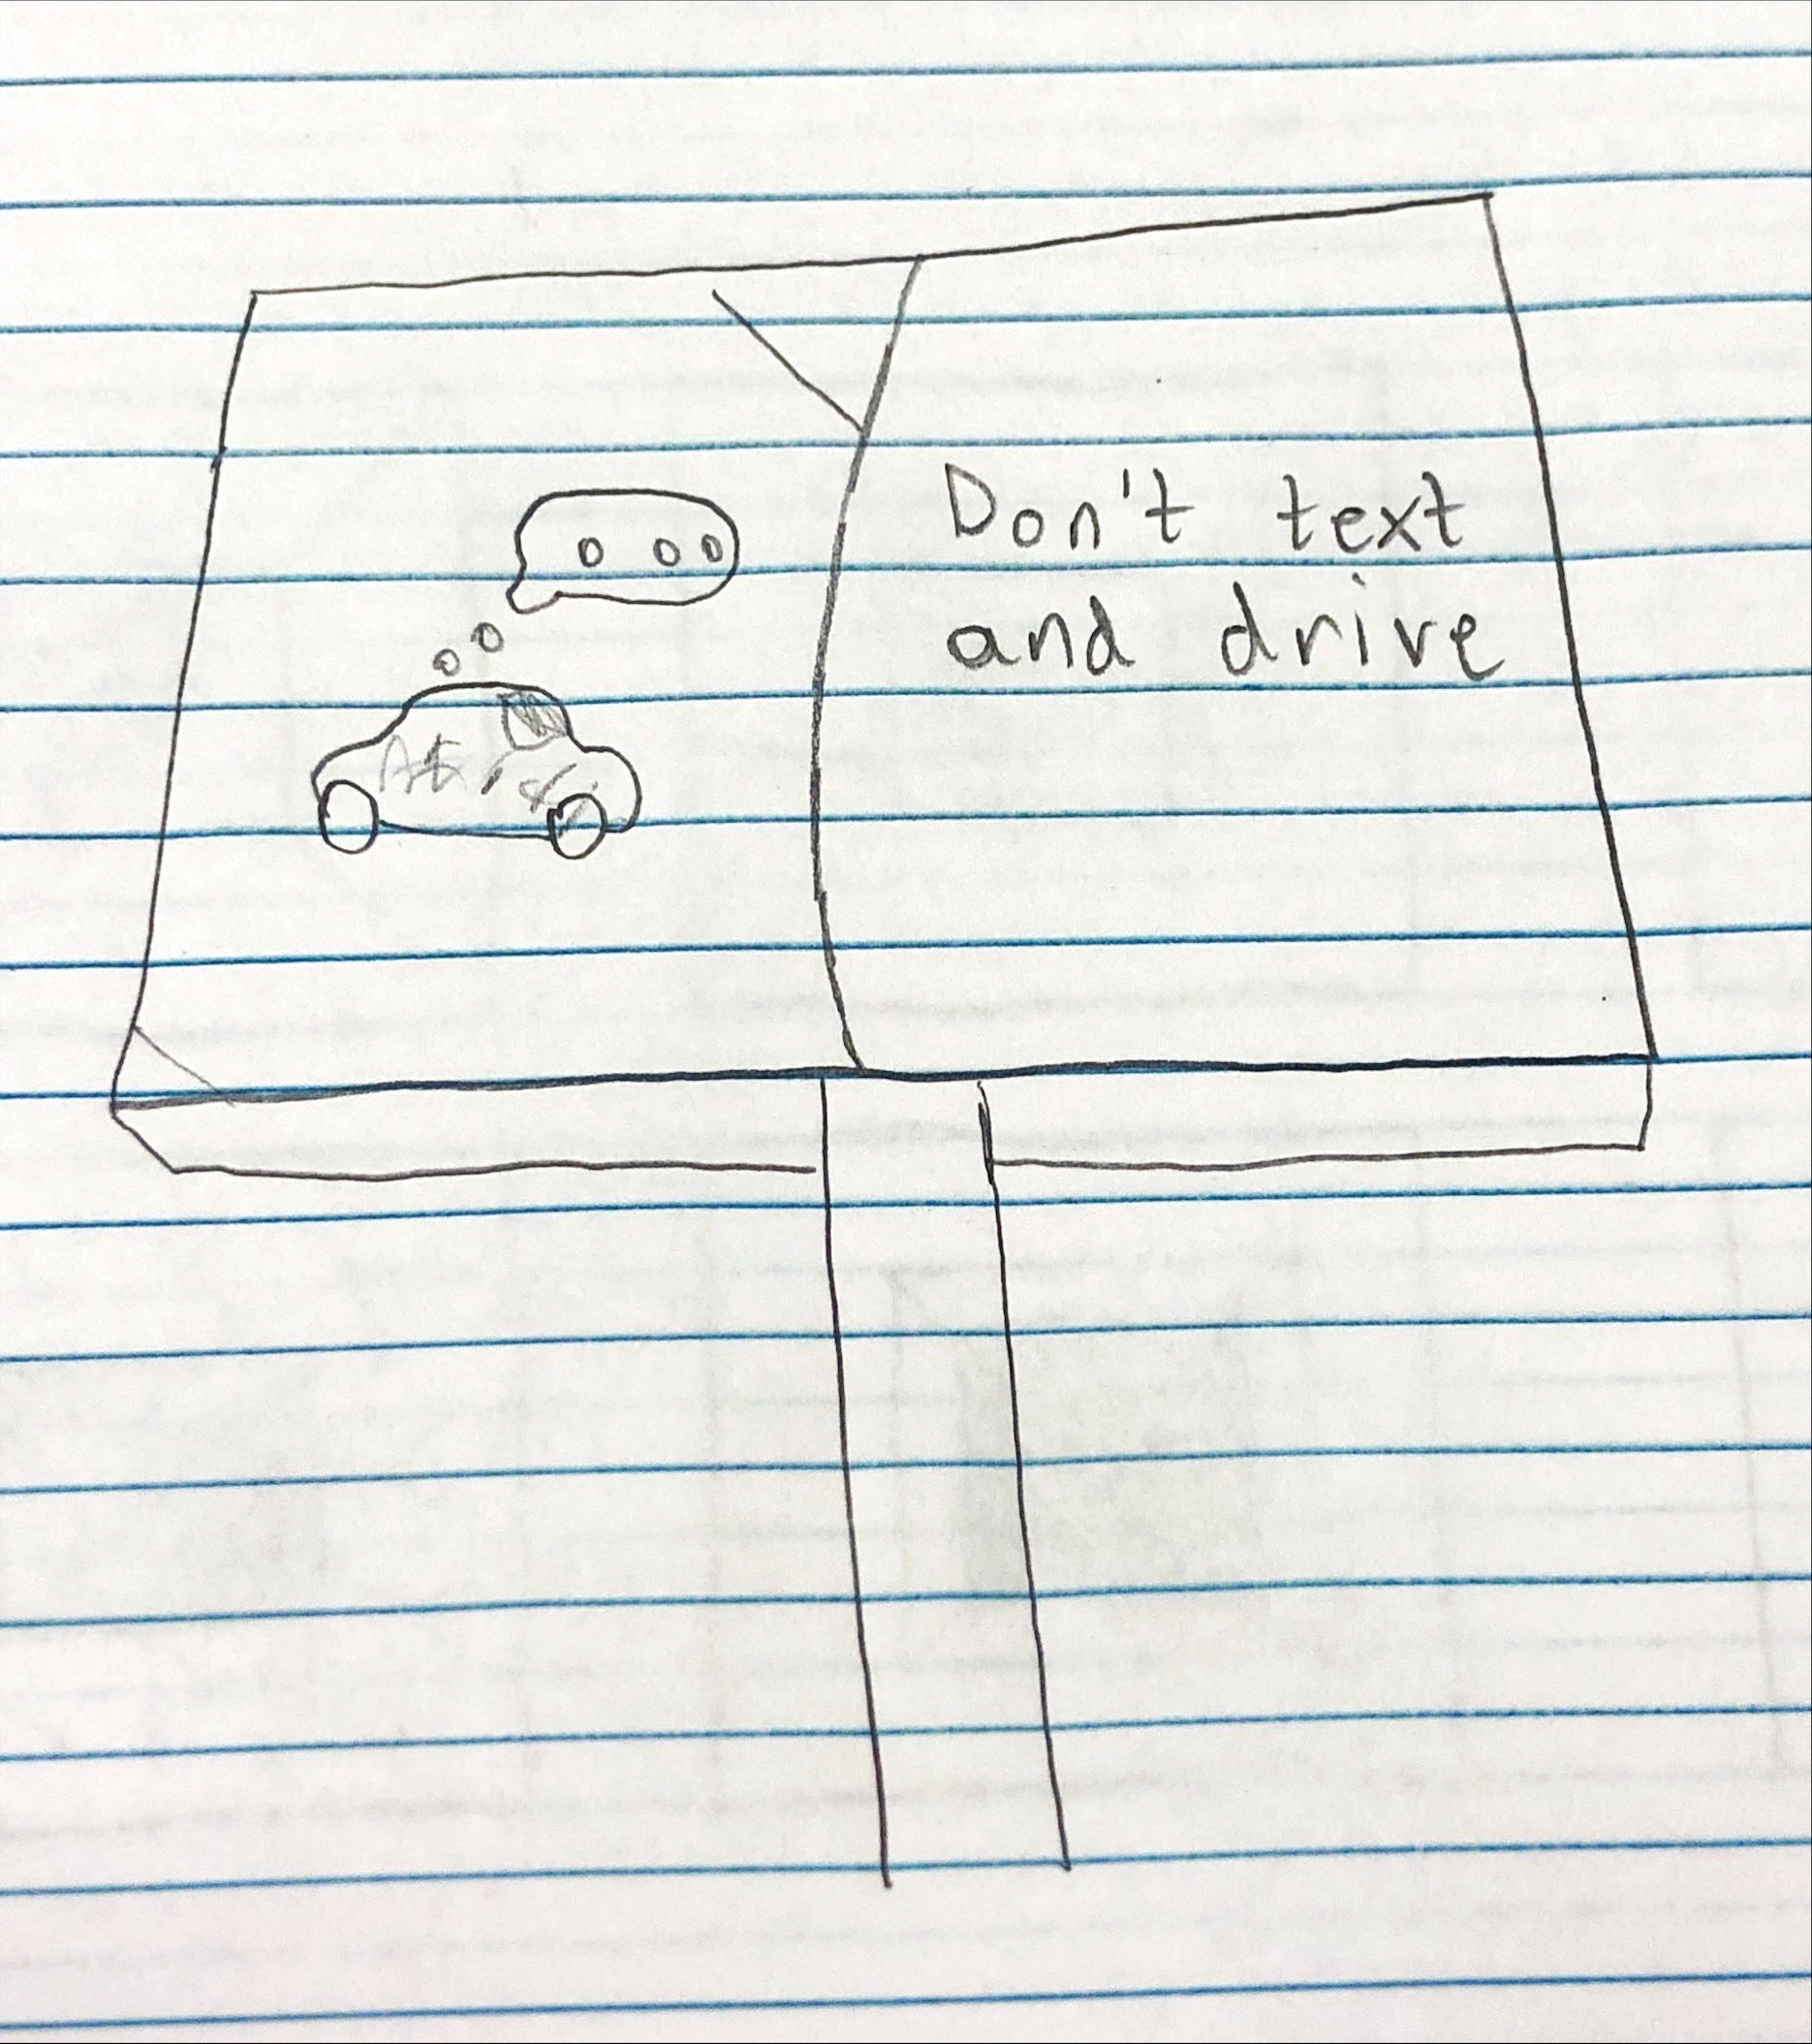 Don't text
and drive